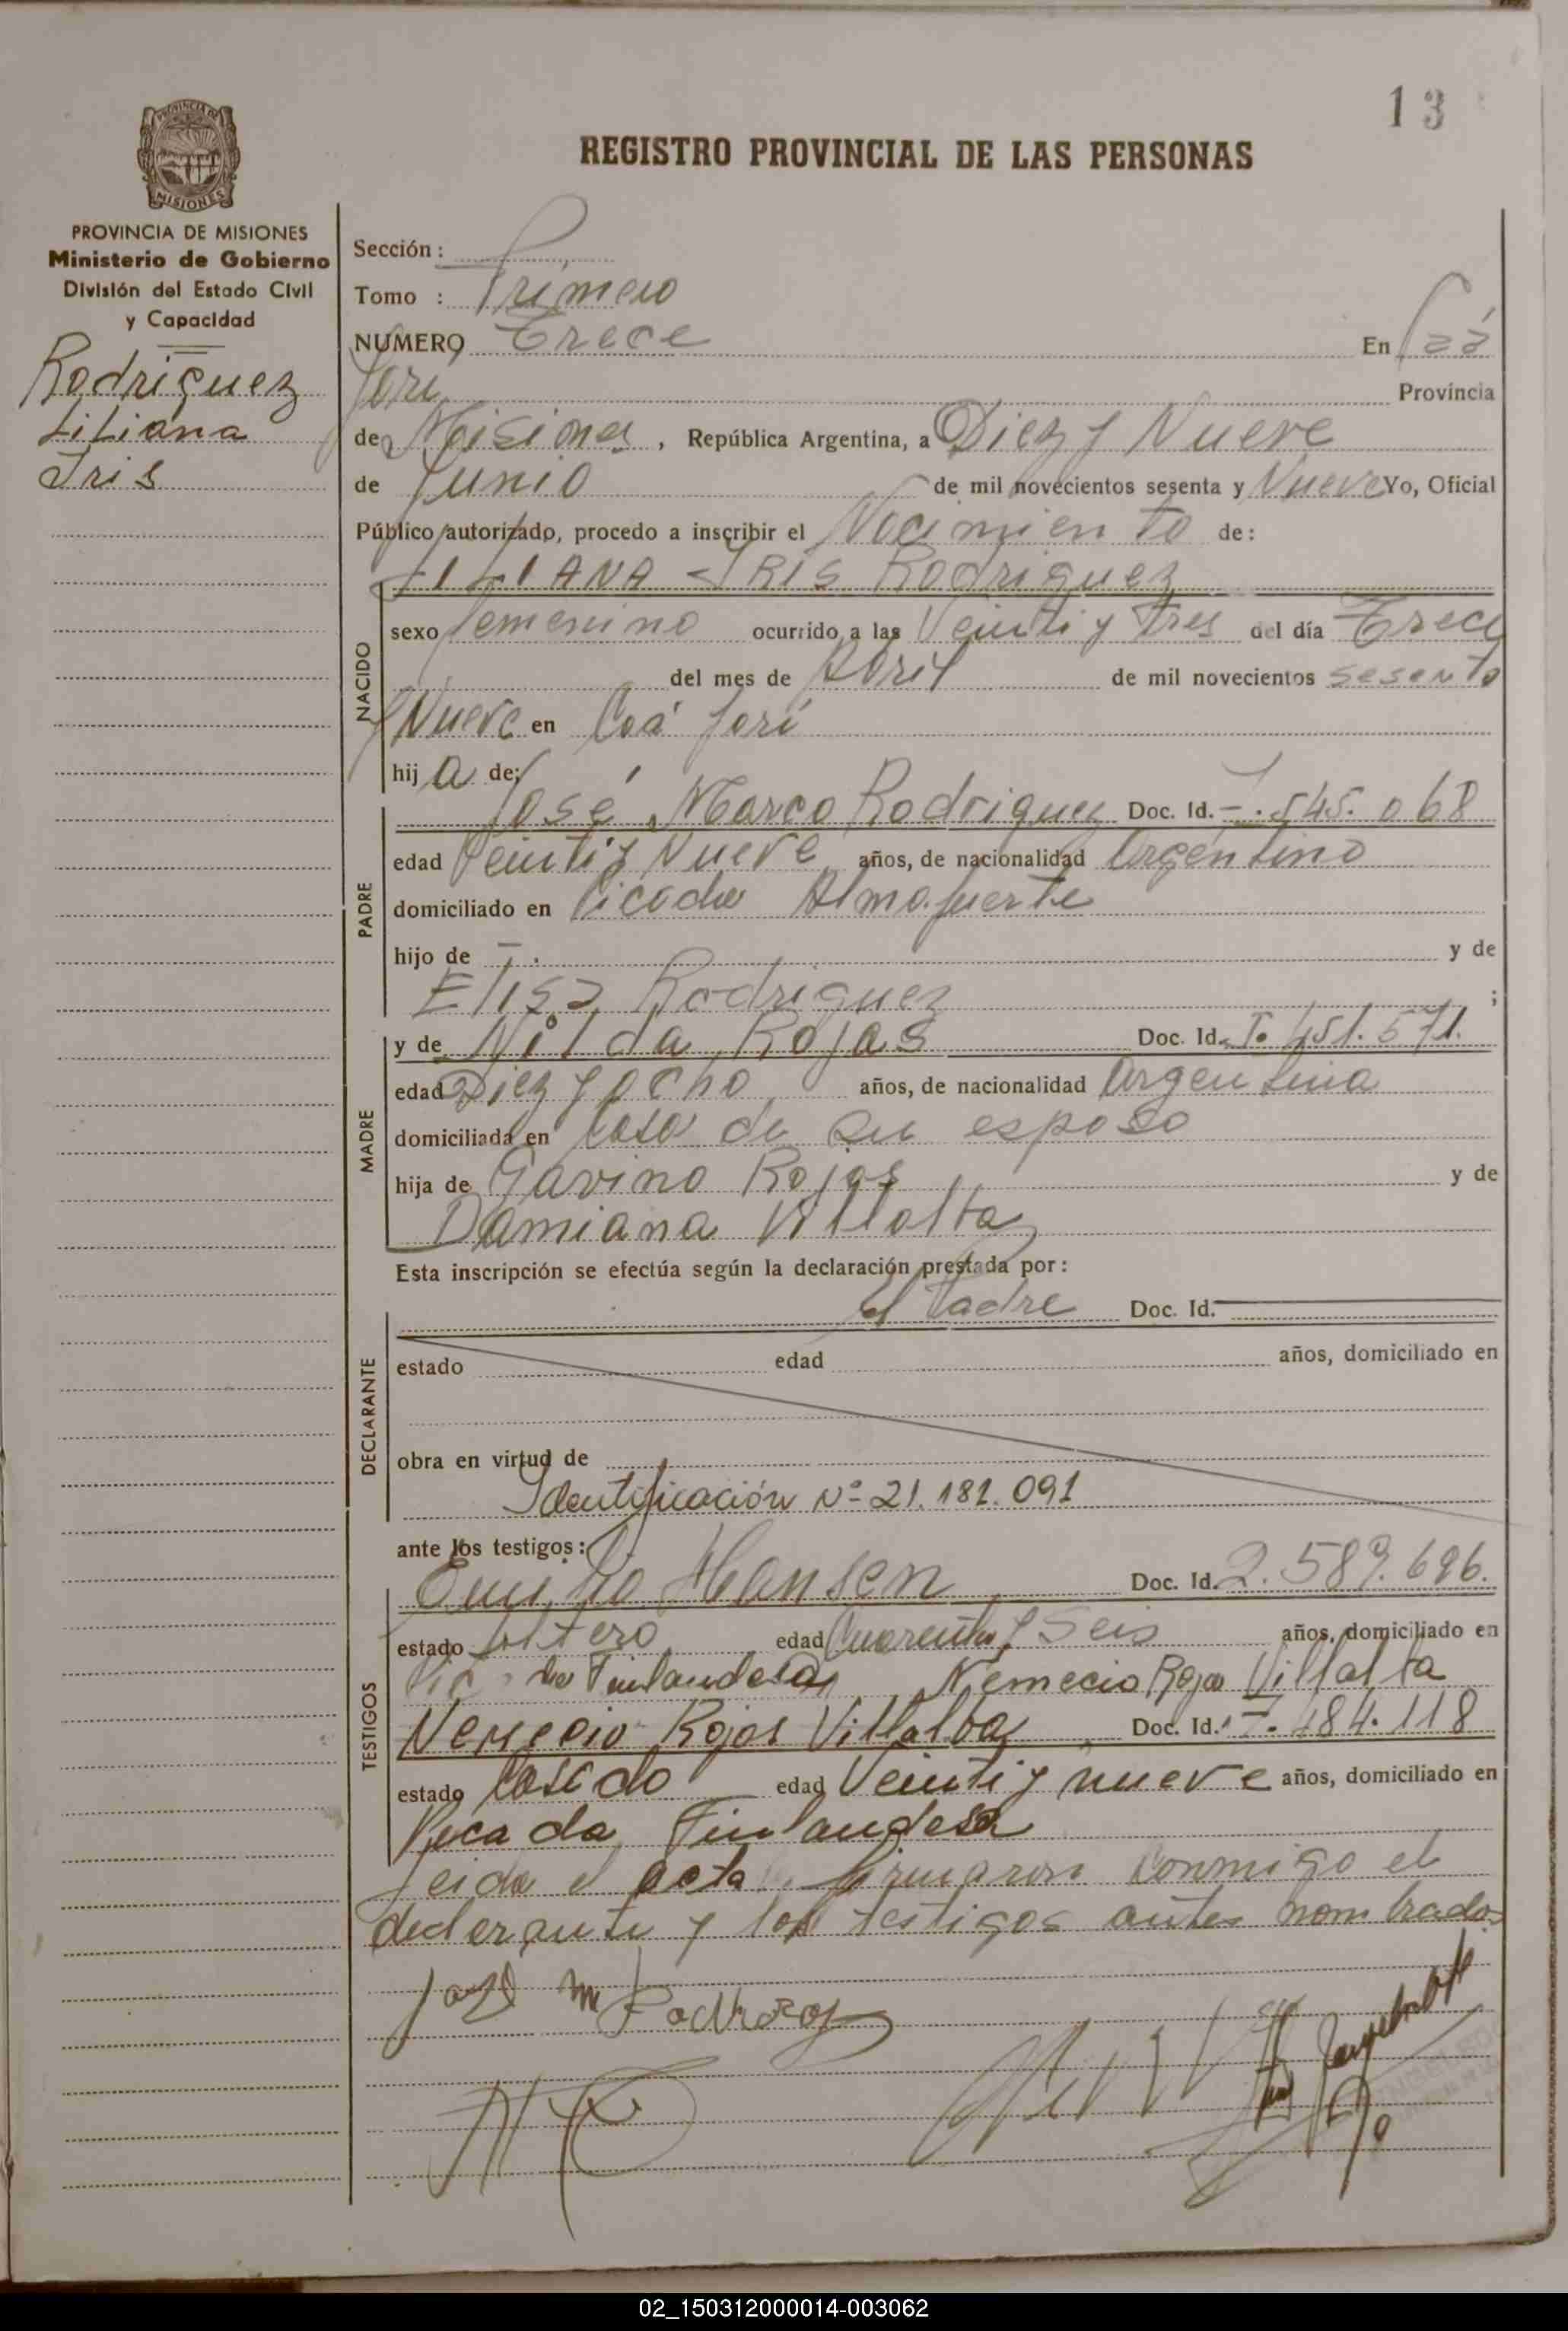 13
REGISTRO PROVINCIAL DE LAS PERSONAS
PROVINCIA DE MISIONES
PROVINCIA DE MISIONES
Ministerio de Gobierno
División del Estado Civil
y Capacidad
Rodriguez
Liliana
Iris
Sección :
Tomo : Primero
NUMERO Trece En Caá
Yari Provincia
de Misiones , República Argentina, a Diez y Nueve
de Junio de mil novecientos sesenta y Nueve Yo, Oficial
Público autorizado, procedo a inscribir el Nacimiento de :
LILIANA IRIS Rodriguez
NACIDO
sexo femenino ocurrido a las Veinti y Tres del día Trece
del mes de Abril de mil novecientos sesenta
y Nueve en Caá Yarí
hij a de:
PADRE
José Marco Rodriguez Doc. Id. 7.545.068
edad Veinti y Nueve años, de nacionalidad Argentino
domiciliado en Picada Almafuerte
hijo de y de
Elisa Rodriguez ;
MADRE
y de Nilda Rojas Doc. Id. 451.571.
edad Diez y ocho años, de nacionalidad Argentina
domiciliada en Casa de su esposo
hija de Gavino Rojas y de
Damiana Villalta
Esta inscripción se efectúa según la declaración prestada por :
DECLARANTE
el Padre Doc. Id.
estado edad años, domiciliado en
obra en virtud de
Identificación Nº 21.181.091
ante los testigos :
TESTIGOS
Emilio Hansen Doc. Id. 2.589.696.
estado Soltero edad Cuarenta y Seis años, domiciliado en
Finlandesa Nemecio Rojas Villalta
Nemecio Rojas Villalba Doc. Id. 7.484.118
estado Casado edad Veinti y nueve años, domiciliado en
Picada Finlandesa
Leida el acta firmaron conmigo el
declarante y los testigos antes nombrados
José M Rodriguez
02_150312000014-003062